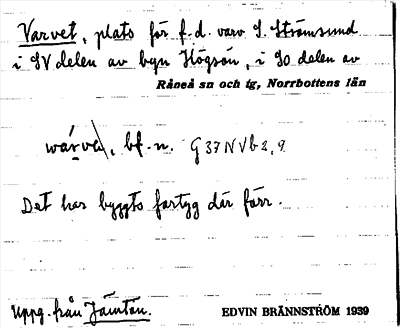 Varvet, plats för f.d. varv S. Strömsund
i SV delen av byn Högsön, i SO delen av
Råneå sn och tg, Norrbottens län
bf. n. G37NVb2,9
Det har byggts fartyg där förr.
Uppg. från Jämtön.
EDVIN BRÄNNSTRÖM 1939